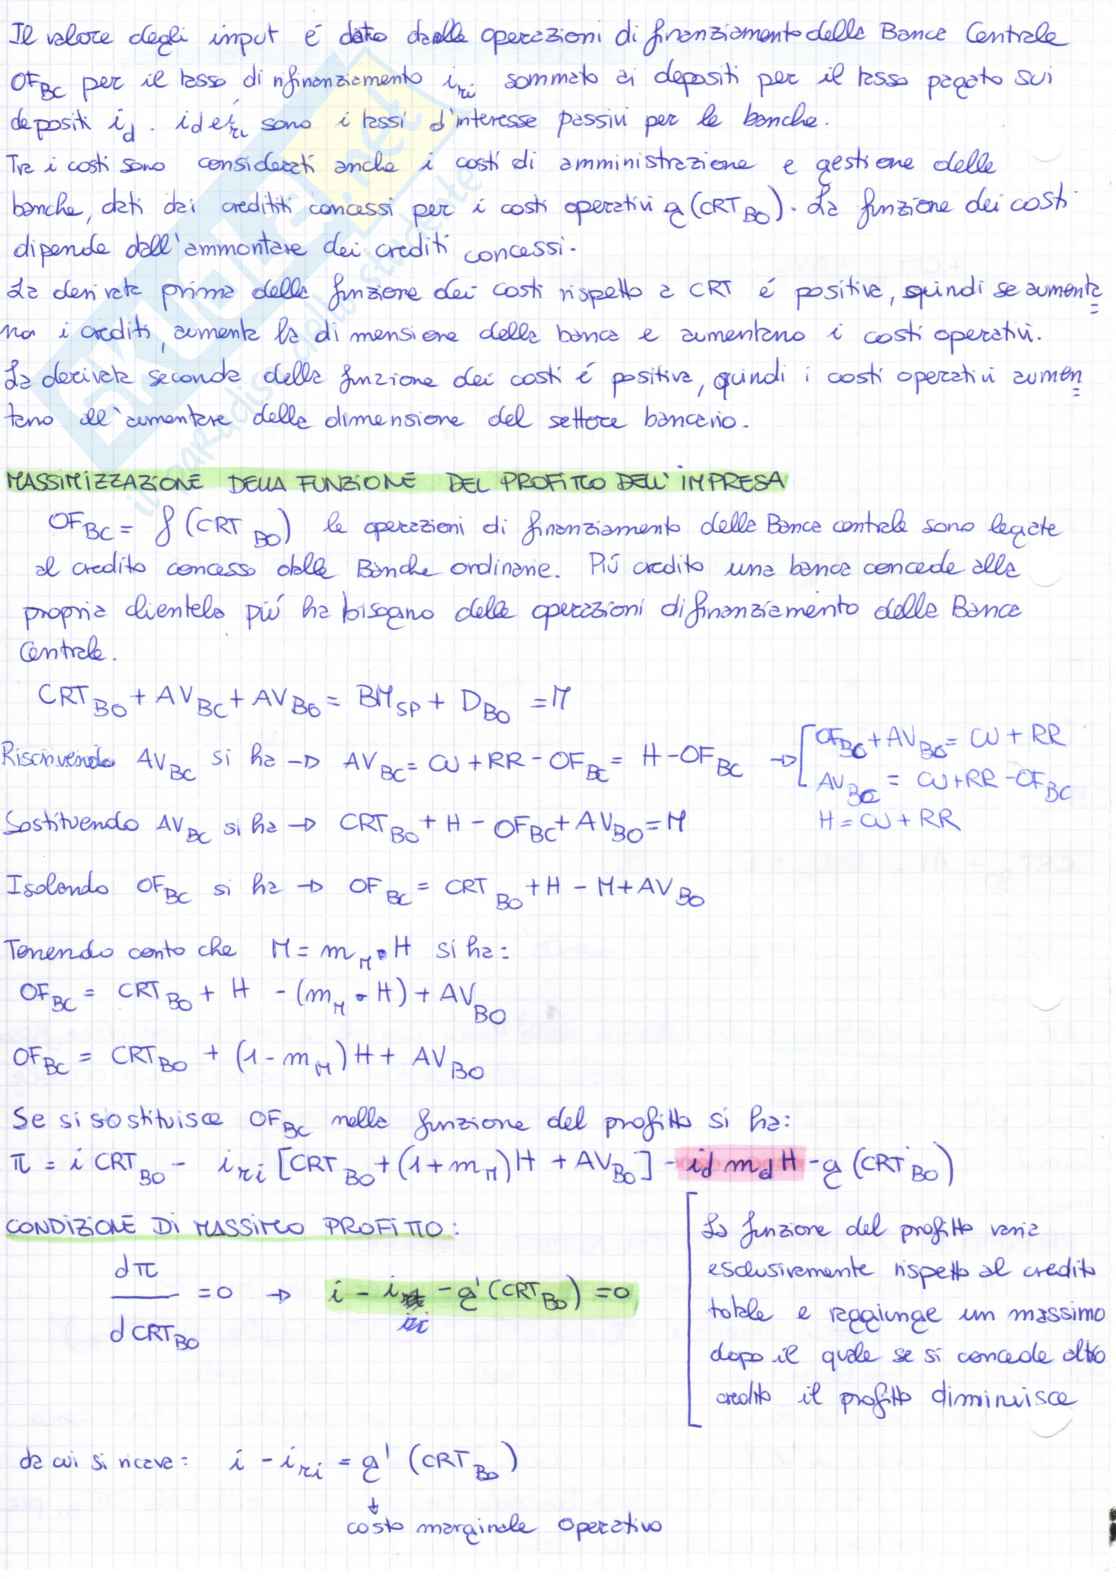 Il valore degli input é dato dalle operazioni di finanziamento della Banca Centrale
OF_BC per il tasso di rifinanziamento i_ri sommato ai depositi per il tasso pagato sui
depositi i_d. id e i_ri sono i tassi d'interesse passivi per le banche.
Tra i costi sono considerati anche i costi di amministrazione e gestione delle
banche, dati dai creditit concessi per i costi operativi g(CRT_BO). La funzione dei costi
dipende dall'ammontare dei crediti concessi.
La derivata prima della funzione dei costi rispetto a CRT é positiva, quindi se aumenta=
no i crediti, aumenta la dimensione della banca e aumentano i costi operativi.
La derivata seconda della funzione dei costi é positiva, quindi i costi operativi aumen=
tano all'aumentare della dimensione del settore bancario.
MASSIMIZZAZIONE DELLA FUNZIONE DEL PROFITTO DELL'IMPRESA
OF_BC = f(CRT_BO) le operazioni di finanziamento della Banca centrale sono legate
al credito concesso dalle Banche ordinarie. Piú credito una banca concede alla
propria clientela piú ha bisogno delle operazioni di finanziamento della Banca
Centrale.
CRT_BO + AV_BC + AV_BO = BM_SP + D_BO = M
Riscrivendo AV_BC si ha → AV_BC = CU + RR - OF_BC = H - OF_BC → [OF_BC + AV_BC = CU + RR
AV_BC = CU + RR - OF_BC
H = CU + RR
Sostituendo AV_BC si ha → CRT_BO + H - OF_BC + AV_BO = M
Isolando OF_BC si ha → OF_BC = CRT_BO + H - M + AV_BO
Tenendo conto che M = m_M • H si ha:
OF_BC = CRT_BO + H - (m_M • H) + AV_BO
OF_BC = CRT_BO + (1 - m_M)H + AV_BO
Se si sostituisce OF_BC nella funzione del profitto si ha:
π = i CRT_BO - i_ri [CRT_BO + (1 + m_M)H + AV_BO] - id m_d H - g(CRT_BO)
CONDIZIONE DI MASSIMO PROFITTO:
dπ/dCRT_BO = 0 → i - i_ri - g'(CRT_BO) = 0
[La funzione del profitto varia
esclusivamente rispetto al credito
totale e raggiunge un massimo
dopo il quale se si concede altro
credito il profitto diminuisce
da cui si ricava: i - i_ri = g'(CRT_BO)
↓
costo marginale operativo